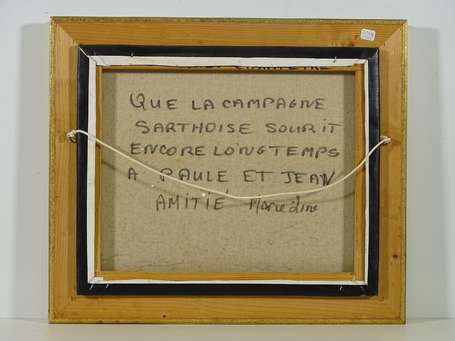 QUE LA CAMPAGNE
SARTHOISE SOURIT
ENCORE LONGTEMPS
A PAULE ET JEAN
AMITIÉ